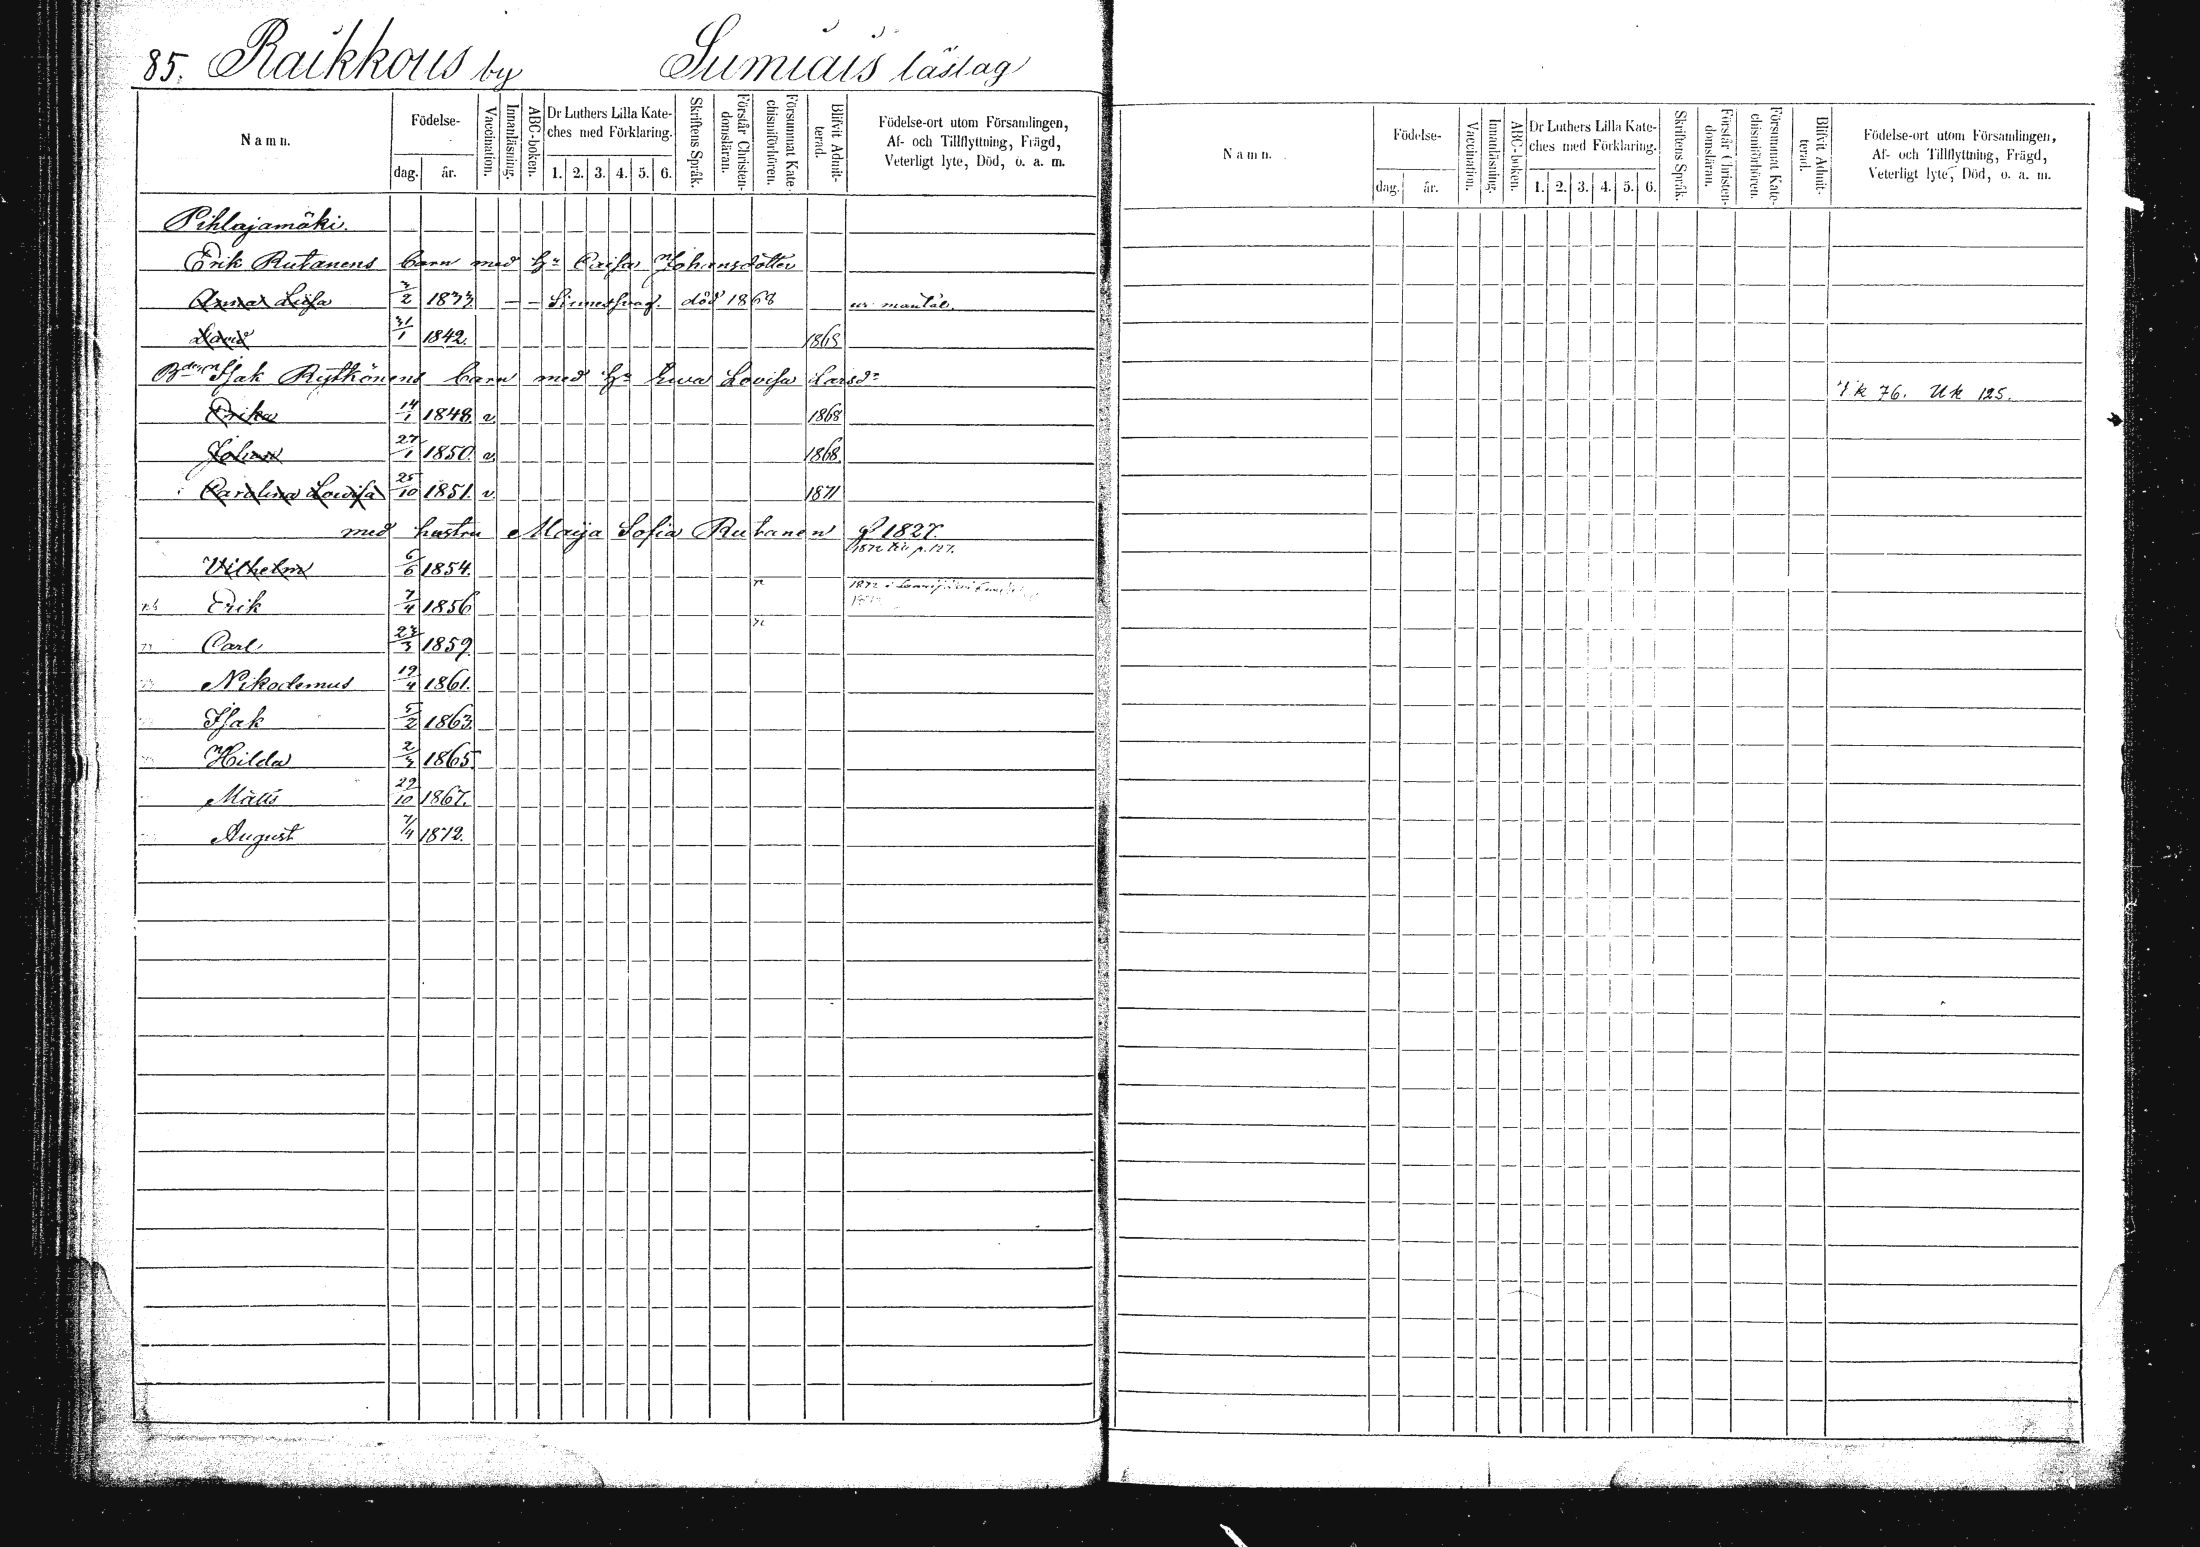 85. Raikkous by Sumiais läslag
Namn. Födelse- dag. år. Vaccination. Innanläsning. ABC-boken. Dr Luthers Lilla Kateches med Förklaring. 1. 2. 3. 4. 5. 6. Skriftens Språk. Förstår Christendomsläran. Försummat Katechismiförhören. Blifvit Admitterad. Födelse-ort utom Församlingen, Af- och Tillflyttning, Frägd, Veterligt lyte, Död, o. a. m.
Pihlajamäki.
Erik Rutanens barn med h:u Caisa Johansdotter
Anna Lisa 3/2 1833 — — Sinnessvag. död 1868 ur mantal.
David 31/1 1842. 1868
Isak Rytkönens barn med h:u Ewa Lovisa Larsd:r
Erika 14/1 1848. v. 1868
Johan 27/1 1850. v. 1868.
Carolina Lovisa 25/10 1851. v. 1871
med hustru Maija Sofia Rutanen f 1827.
Vilhelm 6/6 1854. 1872 p. 127.
Erik 7/4 1856 n 1872
Carl 23/3 1859. n
Nikodemus 19/4 1861.
Isak 5/2 1863.
Hilda 2/3 1865.
Matts 29/10 1867.
August 7/4 1872.
Namn. Födelse- dag. år. Vaccination. Innanläsning. ABC-boken. Dr Luthers Lilla Kateches med Förklaring. 1. 2. 3. 4. 5. 6. Skriftens Språk. Förstår Christendomsläran. Försummat Katechismiförhören. Blifvit Admitterad. Födelse-ort utom Församlingen, Af- och Tillflyttning, Frägd, Veterligt lyte, Död, o. a. m.
I k 76. U k 125.